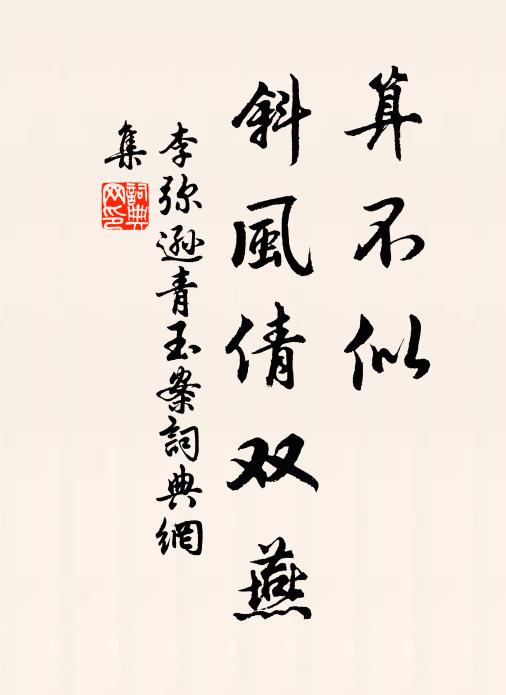 算不似
斜風倩双燕
李弥遜青玉案詞典網
集
詞典网印